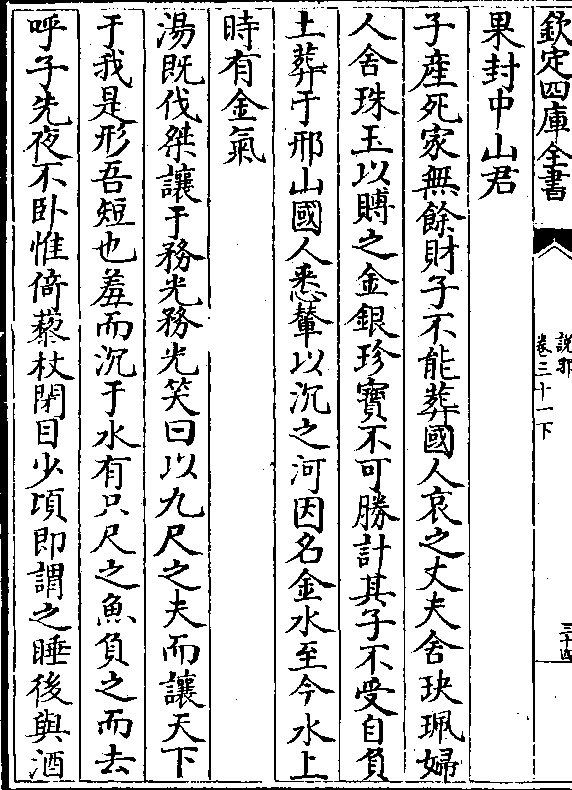 欽定四庫全書
說郛
卷三十一下
三十四
果封中山君
子產死家無餘財子不能葬國人哀之丈夫舍玦珮婦
人舍珠玉以賻之金銀珍寶不可勝計其子不受自負
土葬于邢山國人悉輦以沉之河因名金水至今水上
時有金氣
湯既伐桀讓于務光務光笑曰以九尺之夫而讓天下
于我是形吾短也羞而沉于水有只尺之魚負之而去
呼子先夜不卧惟倚藜杖閉目少頃即謂之睡後與酒